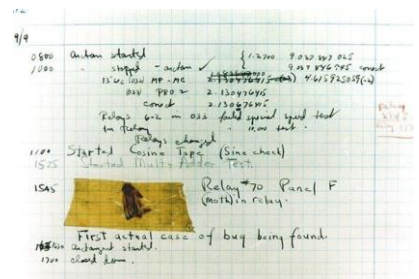 9/9
0800 antan started
1000 stopped - antan ✓ { 1.2700 9.037 847 025
9.037 846 995 correct
13"uc (032) MP - MC 4.615925059(-2)
(033) PRO 2 2.130476415
correct 2.130676415
Relays 6-2 in 033 failed special speed test
in relay " 11.00 test.
Relays changed
1100 Started Cosine Tape (Sine check)
1525 Started Multi Adder Test.
1545 Relay #70 Panel F
(moth) in relay.
First actual case of bug being found.
antangent started.
1700 closed down.